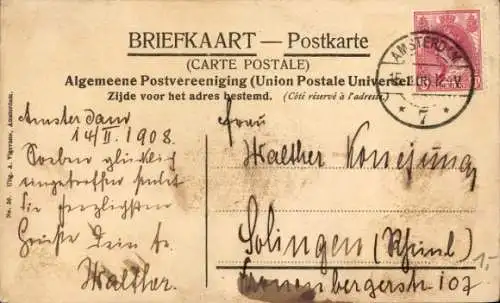 BRIEFKAART — Postkarte
(CARTE POSTALE)
Algemeene Postvereeniging (Union Postale Universelle)
Zijde voor het adres bestemd. (Côté réservé à l'adresse)
AMSTERDAM
7
No. 50. Uitg. A. Vigevano, Amsterdam.
Amsterdam
14/II. 1908.
Soeben glücklich
eingetroffen sendet
die herzlichsten
Grüsse Dein
Walther.
Frau
Walther
Solingen (Rheinl)
Kronenbergerstr 107
1.-